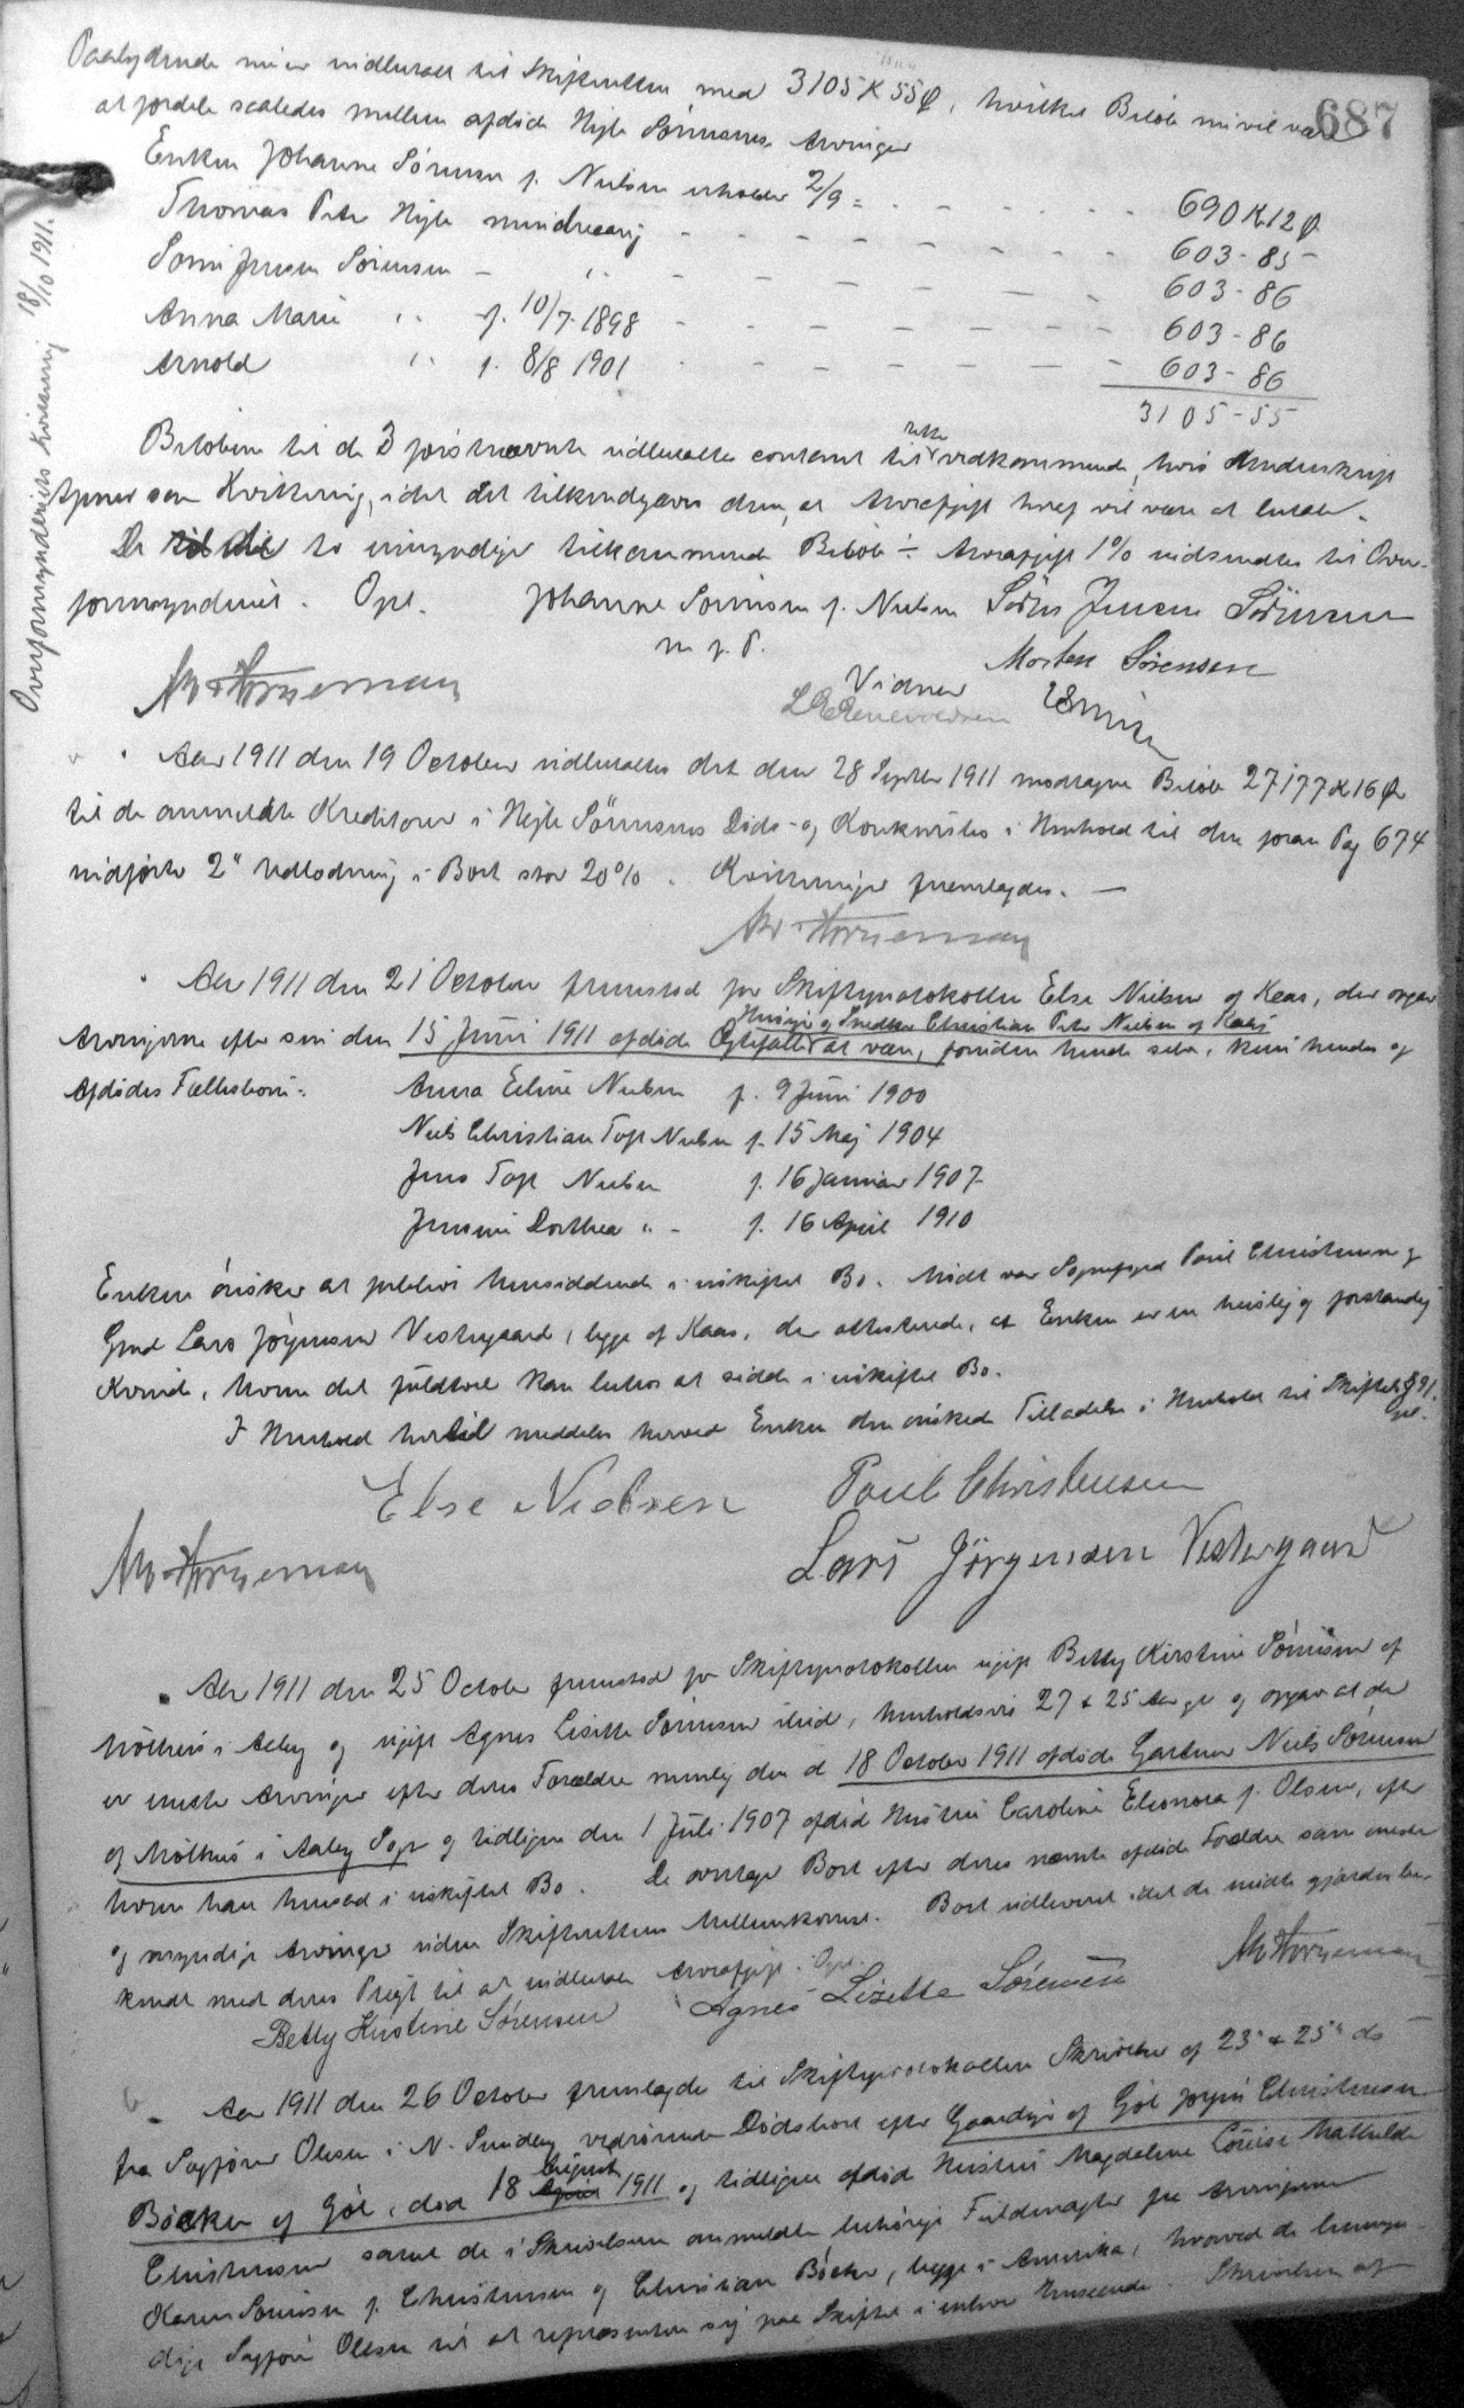 687
Paalydende nu er indbetalt til Skifteretten med 3105 K 55 Ø, hvilket Beløb nu vil være
at fordele saaledes mellem afdøde Nyle Sørensens Arvinger
Enken Johanne Sørensen f. Nielsen erholder 2/9 = 690 K 12 Ø
Thomas Peter Nyle mindreaarig 603 - 85 -
Søren Jensen Sørensen - " 603 - 86
Anna Marie " f. 10/7 1898 603 - 86
Arnold " f. 8/8 1901 603 - 86
3105 - 55
Beløbene til de 3 førstnævnte udbetaltes contant til rette vedkommende, hvis Underskrift
tjener som Kvittering, idet det tilkendegaves dem, at Arveafgift heraf vil være at betale.
De to umyndige tilkommende Beløb ÷ Arveafgift 1% indsendtes til Over-
formynderiet. Opl. Johanne Sørensen f. Nielsen Sören Jensen Sörensen
m. f. P. Morten Sørensen
Vidner
Overformynderiets Kvittering 18/10 1911.
Aar 1911 den 19 October udbetaltes det den 28 Septbr 1911 modtagne Beløb 27177 K 16 Ø
til de anmeldte Kreditorer i Nyle Sørensens Døds- og Konkursbo i Henhold til den foran Pag 674
indførte 2" Udlodning i Boet stor 20%. Kvitteringer fremlagdes. —
Aar 1911 den 21 October fremstod for Skifteprotokollen Else Nielsen af Kaas, der opgav
Husejer og Snedker Christian Peter Nielsen af Kaas
Arvingerne efter sin den 15 Juni 1911 afdøde Ægtefælle at være, foruden hende selv, kun hendes og
Afdødes Fællesbørn:
Anna Eline Nielsen f. 9 Juni 1900
Niels Christian Toft Nielsen f. 15 Maj 1904
Jens Toft Nielsen f. 16 Januar 1907
Jensine Dorthea " - f. 16 April 1910
Enken ønsker at forblive hensiddende i uskiftet Bo. Mødt var Sognefoged Poul Christensen og
Gmd Lars Jørgensen Vestergaard, begge af Kaas, der attesterede, at Enken er en huslig og forstandig
Kvinde, hvem det fuldtvel kan betros at sidde i uskiftet Bo.
I Henhold hertil meddeles herved Enken den ønskede Tilladelse i Henhold til Skiftel. § 91.
Opl.
Else Nielsen Poul Christensen
Lars Jörgensen Vestergaard
Aar 1911 den 25 October fremstod for Skifteprotokollen ugift Betty Kirstine Sørensen af
Mølhus i Aaby og ugift Agnes Lisette Sørensen ibid, henholdsvis 27 & 25 Aar gl. og opgav at de
er eneste Arvinger efter deres Forældre nemlig den d 18 October 1911 afdøde Gartner Niels Sørensen
af Mølhus i Aaby Sogn og tidligere den 1 Juli 1907 afdød Hustru Caroline Eleonora f. Olsen, efter
hvem han hensad i uskiftet Bo. De overtager Boet efter deres nævnte afdøde Forældre som eneste
og myndige Arvinger uden Skifterettens Mellemkomst. Boet udleveret idet de medte gjordes be-
kendt med deres Pligt til at indbetale Arveafgift. Opl.
Betty Kirstine Sørensen Agnes Lizette Sørensen
Aar 1911 den 26 October fremlagde til Skifteprotokollen Skrivelser af 23" & 25" ds
fra Sagfører Olesen i N. Sundby vedrørende Dødsboet efter Gaardejer af Gøl Jørgen Christensen
August
Böcker af Gøl, død 18 April 1911 og tidligere afdød Hustru Magdalene Louise Mathilde
Christensen samt de i Skrivelsen anmeldte behørige Fuldmagter fra Arvingerne
Karen Sørensen f. Christensen og Christian Böcker, begge i Amerika, hvorved de bemyn-
dige Sagfører Olesen til at repræsentere sig paa Skiftet i enhver Henseende. Skrivelsen af